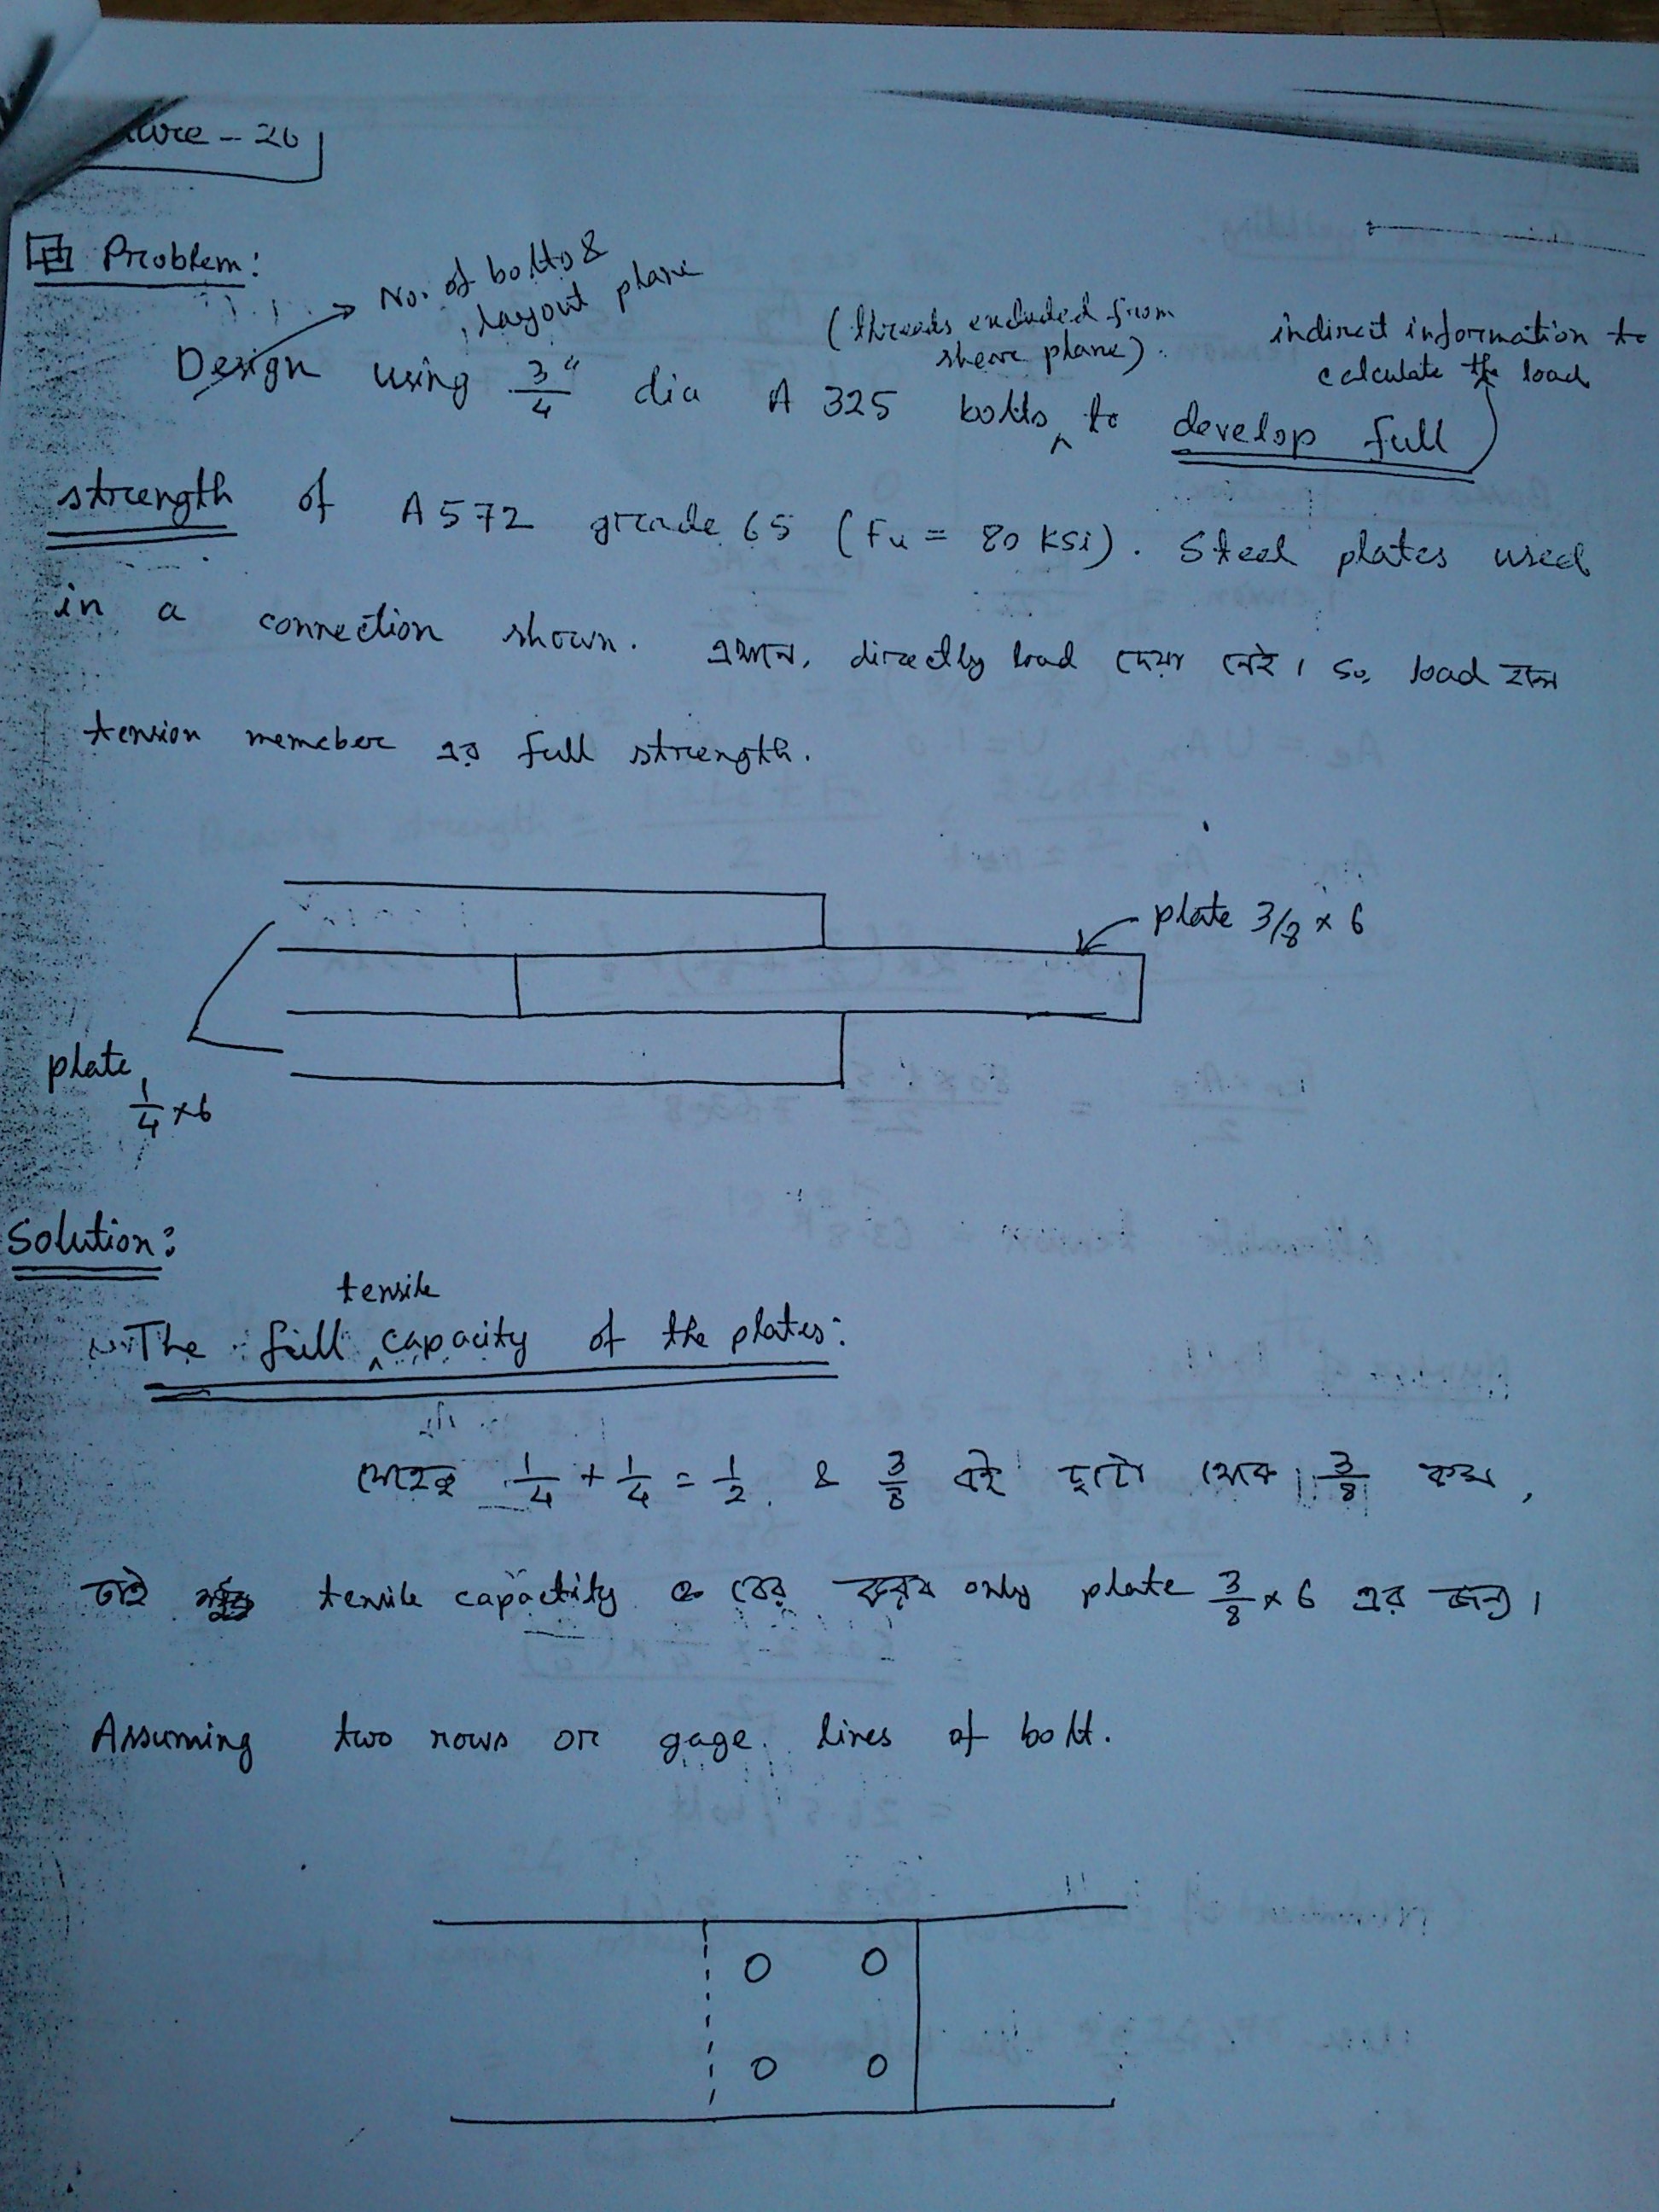 ture - 26
Problem:
No. of bolts &
layout plane
(threads excluded from
shear plane).
indirect information to
calculate the load
Design using 3/4" dia A 325 bolts to develop full
strength of A572 grade 65 (Fu = 80 ksi). Steel plates used
in a connection shown. এখানে, directly load দেয়া নেই। So, load হবে
tension memeber এর full strength.
plate 3/8 × 6
plate
1/4 × 6
Solution:
tensile
The full capacity of the plates:
যেহেতু 1/4 + 1/4 = 1/2 & 3/8 এই দুটো থেকে 3/8 কম,
তাই tensile capactity বের করব only plate 3/8 × 6 এর জন্য।
Assuming two rows or gage lines of bolt.